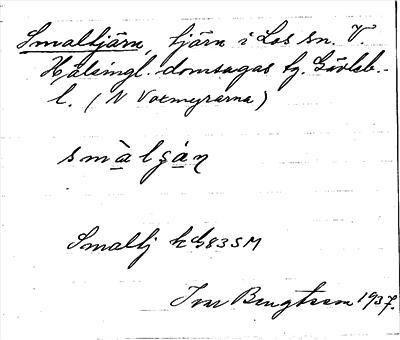 Smaltjärn, tjärn i Los sn. V.
Hälsingl. domsagas tg. Gävleb.-
l. (N Voxmyrarna)
smàlgáŋ
Smaltj kG83SM
Ivar Bengtsson 1937.